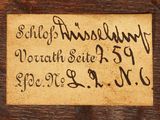 Schloß Düsseldorf
Vorrath Seite 259
Lfde. No L. 2. N. 6